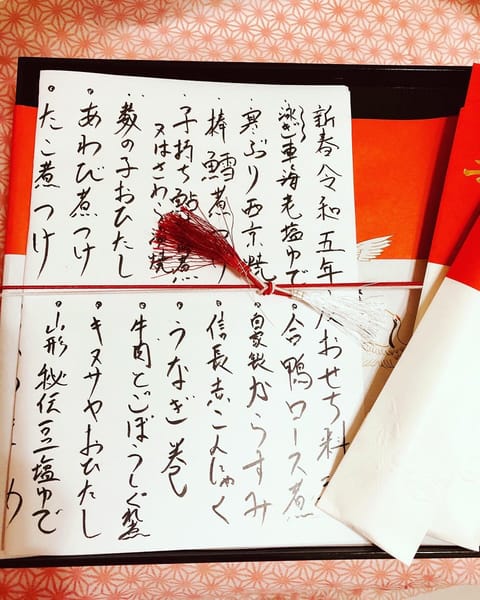 新春令和五年 おせち料
泳ぎ車海老塩ゆで
寒ぶり西京焼
棒鱈煮つけ
子持ち鮎 煮
又はさわ 焼
数の子おひたし
あわび煮つけ
たこ煮つけ
合鴨ロース煮
自家製からすみ
信長赤こんにゃく
うなぎ巻
牛肉とごぼうしぐれ煮
キヌサヤおひたし
山形秘伝豆塩ゆで